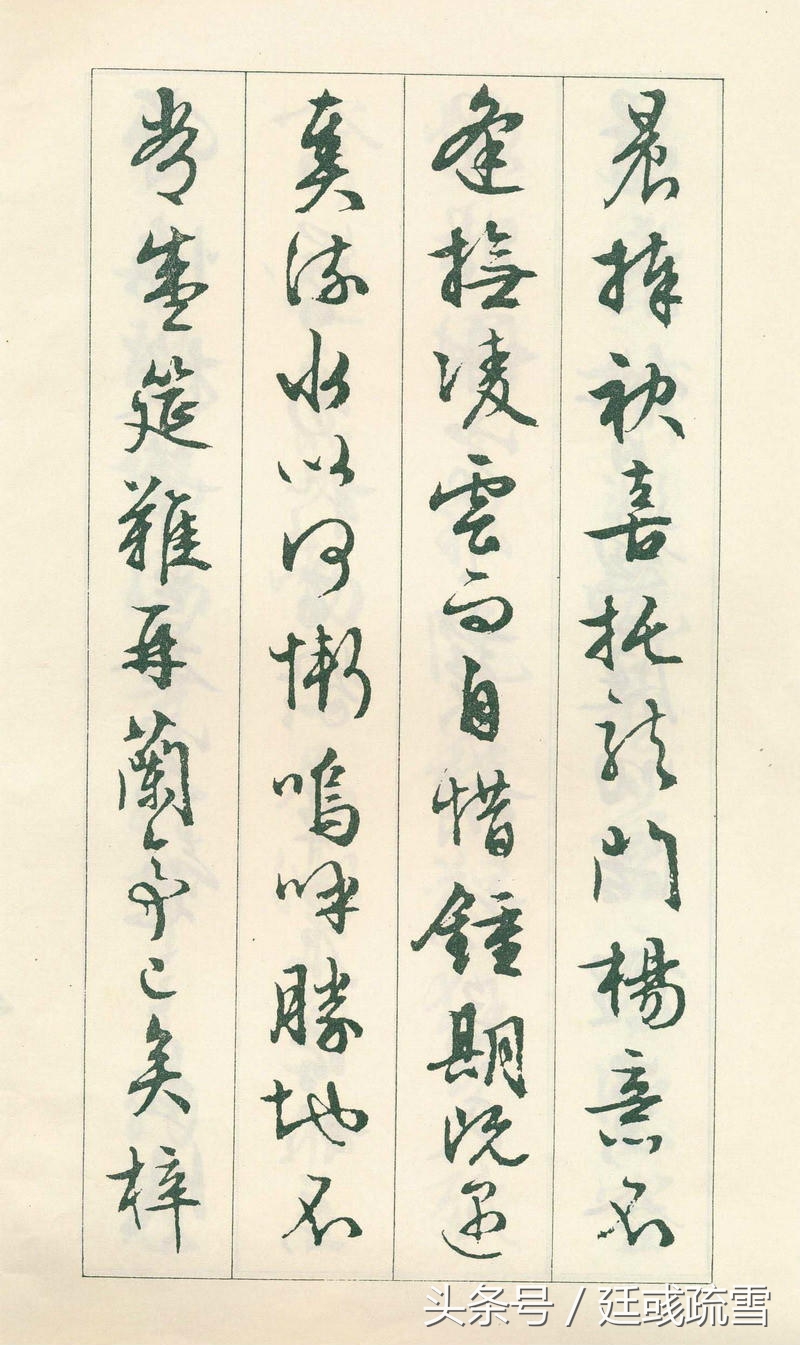 晨捧袂喜托龍門楊意不
逢撫凌雲而自惜鍾期既遇
奏流水以何慚嗚呼勝地不
常盛筵難再蘭亭已矣梓
头条号 / 廷彧疏雪